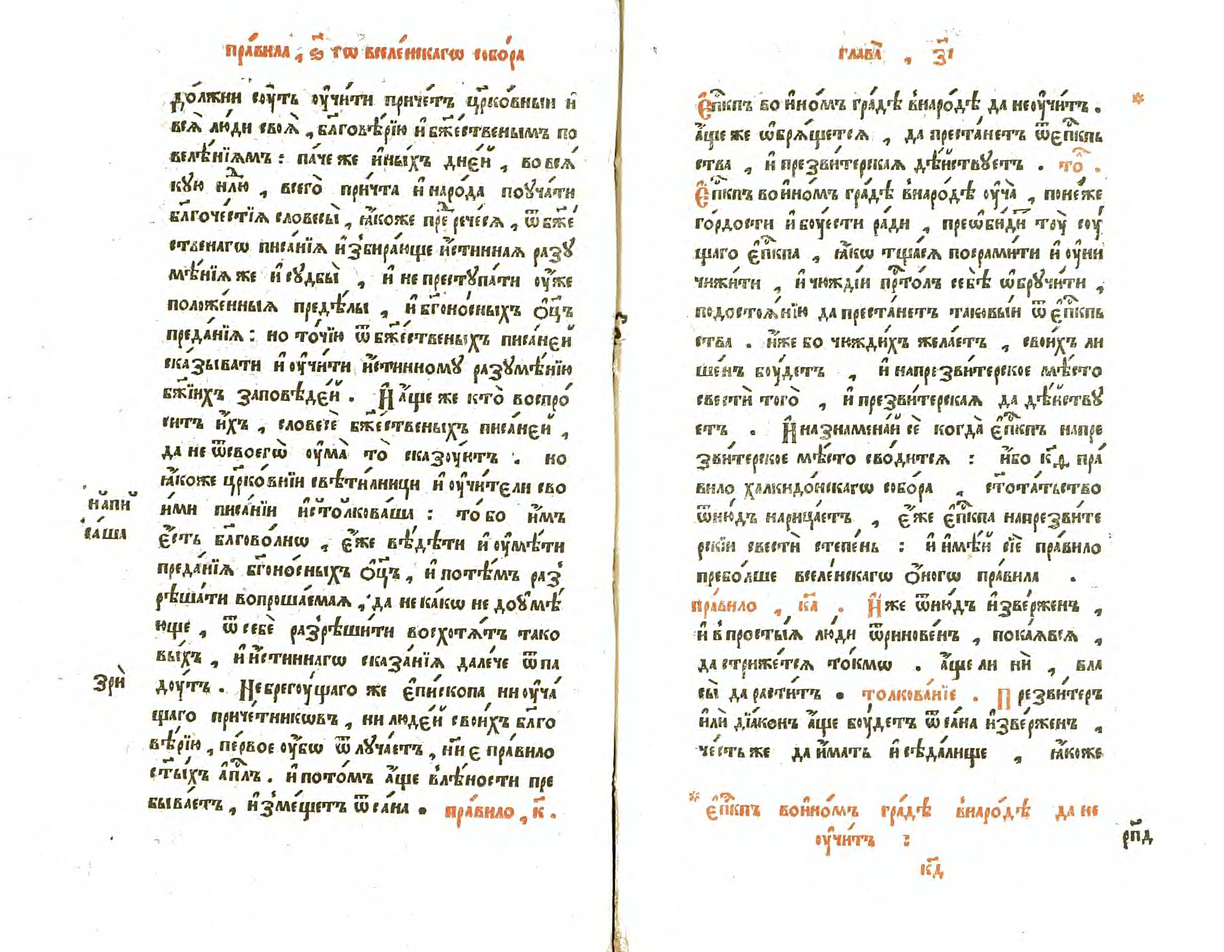 пра́вила , ѕ҃ гѡ вселе́нскагѡ собо́ра
до́лжни сꙋ́ть ᲂу҆чи́ти приче́тъ цр҃ко́вныи и҆
всѧ̀ лю́ди своѧ̀ , бл҃гове́рїю и҆ бж҃е́ственымъ по
велѣ́нїѧмъ : па́че же и҆́ныхъ дне́й , во всѧ́
кую нлⷣю , всего̀ при́чта и҆ наро́да поуча́ти
бл҃гоче́стїѧ словесы̀ , ꙗ҆́коже пре́ рече́сѧ , ѿ бж҃е́
ственагѡ писа́нїѧ и҆збира́юще и҆́стиннаѧ разꙋ
мѣ́нїѧ же и҆ сꙋдбы̀ , и҆ не преступа́ти ᲂу҆́же
положе́нныѧ преде́лы , и҆ бг҃оно́сныхъ ѻ҆ц҃ъ
преда́нїѧ : но то́чїю ѿ бж҃е́ственыхъ писа́нєй
ска́зывати и҆ ᲂу҆чи́ти и҆́стинному разꙋмѣ́нїю
бж҃їихъ за́повѣдєй . И҆ а҆́ще же кто̀ воспро́
ситъ и҆́хъ , словесѐ бж҃е́ственыхъ писа́нєй ,
да не ѿ своегѡ̀ ᲂу҆ма̀ то̀ ска́зꙋитъ . но
ꙗ҆́коже цр҃ко́внїи свѣти́лницы и҆ ᲂу҆чи́тели сво
и́ми писа́нїи и҆столкова́ша : то́ бо и҆̀мъ
є҆́сть бл҃говолнѡ , є҆́же вѣ́дѣти и҆ ᲂу҆мѣ́ти
преда́нїѧ бг҃оно́сныхъ ѻ҆ц҃ъ , и҆ пото́мъ раз
рѣша́ти вопроша́емаѧ , да не ка́кѡ не доꙋмѣ́
юще , ѿ себѐ разрѣши́ти восхотѧ́тъ тако
вы́хъ , и҆ и҆́стиннагѡ сказа́нїѧ дале́че ѿпа
дꙋ́тъ . Небрегꙋ́щаго же є҆пи́скопа ни ᲂу҆ча́
щаго приче́тникѡвъ , ни люде́й свои́хъ бл҃го
вѣ́рїю , пе́рвое ᲂу҆́бѡ ѿлуча́етъ , н҃и є пра́вило
ст҃ы́хъ а҆пⷭ҇лъ . и҆ пото́мъ а҆́ще в̾лѣ́ности пре
быва́етъ , и҆зме́щетъ ѿ са́на . пра́вило , к҃ .
на́пи
са́ша
зрѝ
глава̀ , з҃і
Є҆пⷭ҇кпъ во и҆но́мъ гра́дѣ в̾наро́дѣ да не ᲂу҆чи́тъ . *
а҆́ще же ѡ҆брѧ́щетсѧ , да преста́нетъ ѿ є҆пⷭ҇кпь
ства , и҆ презви́терскаѧ дѣ́йствꙋетъ . то . 
Є҆пⷭ҇кпъ во и҆но́мъ гра́дѣ в̾наро́дѣ ᲂу҆ча̀ , поне́же
го́рдости и҆ бꙋ́ести ра́ди , преѡби́дитꙋ сꙋ́
щаго є҆пⷭ҇кпа , ꙗ҆́кѡ тща́сѧ посрами́ти и҆ ᲂу҆ни
чижи́ти , и҆ чюжді́й прⷭ҇то́лъ себѣ̀ ѡ҆брꙋчи́ти ,
по достоѧ́нїю да преста́нетъ таковы́и ѿ є҆пⷭ҇кпь
ства . и҆́же бо чюжди́хъ жела́етъ , свои́хъ ли
ше́нъ бꙋ́детъ , и҆ на презви́терское мѣ́сто
свестѝ того̀ , и҆ презви́терскаѧ да дѣ́йствꙋ
етъ . И҆ назнамена́й сѐ когда̀ є҆пⷭ҇кпъ на пре
зви́терское мѣ́сто сво́дитсѧ : и҆́бо к҃ѳ , пра́
вило халкидо́нскагѡ собо́ра , ст҃ота́тьство
ѿню́дъ нарица́етъ , є҆́же є҆пⷭ҇кпа на презви́те
рскїи свестѝ степе́нь : и҆ и҆мѣ́й сїѐ пра́вило
пребо́лше вселе́нскагѡ ѻ҆́ногѡ пра́вила .
пра́вило , к҃а . И҆́же ѿню́дъ и҆зве́рженъ ,
и҆ в̾про́стыѧ лю́ди ѿринове́нъ , пока́ѧвсѧ ,
да стриже́тсѧ то́кмѡ . а҆́ще ли нѝ , вла
сы̀ да расти́тъ . толкова́нїе . Презви́теръ
и҆лѝ дїа́конъ а҆́ще бꙋ́детъ ѿ са́на и҆зве́рженъ ,
че́сть же да и҆́мать и҆ сѣда́лище , ꙗ҆́коже
* є҆пⷭ҇кпъ во и҆но́мъ гра́дѣ в̾наро́дѣ да не
ᲂу҆чи́тъ :
рп҃д
к҃д